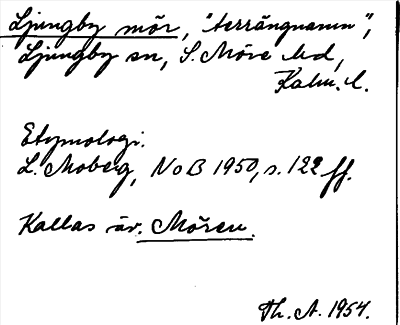 Ljungby mör, "terrängnamn",
Ljungby sn, S. Möre hd,
Kalm. l.
Etymologi.
L. Moberg, NoB 1950, s. 122 ff.
Kallas äv. Mören.
Th. A. 1954.